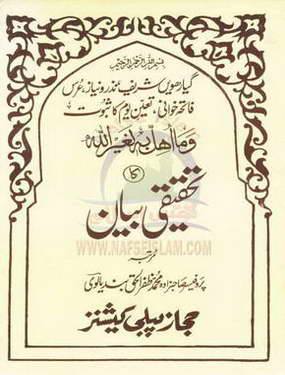 بسم اللہ الرحمن الرحیم
گیارھویں شریف، نذر و نیاز، عرس
فاتحہ خوانی، تعین یوم کا ثبوت
وما اھل بہ لغیر اللہ
کا
تحقیقی بیان
WWW.NAFSEISLAM.COM
مرتبہ
پروفیسر صاحبزادہ محمد مظفر الحق بندیالوی
حجاز پبلی کیشنز